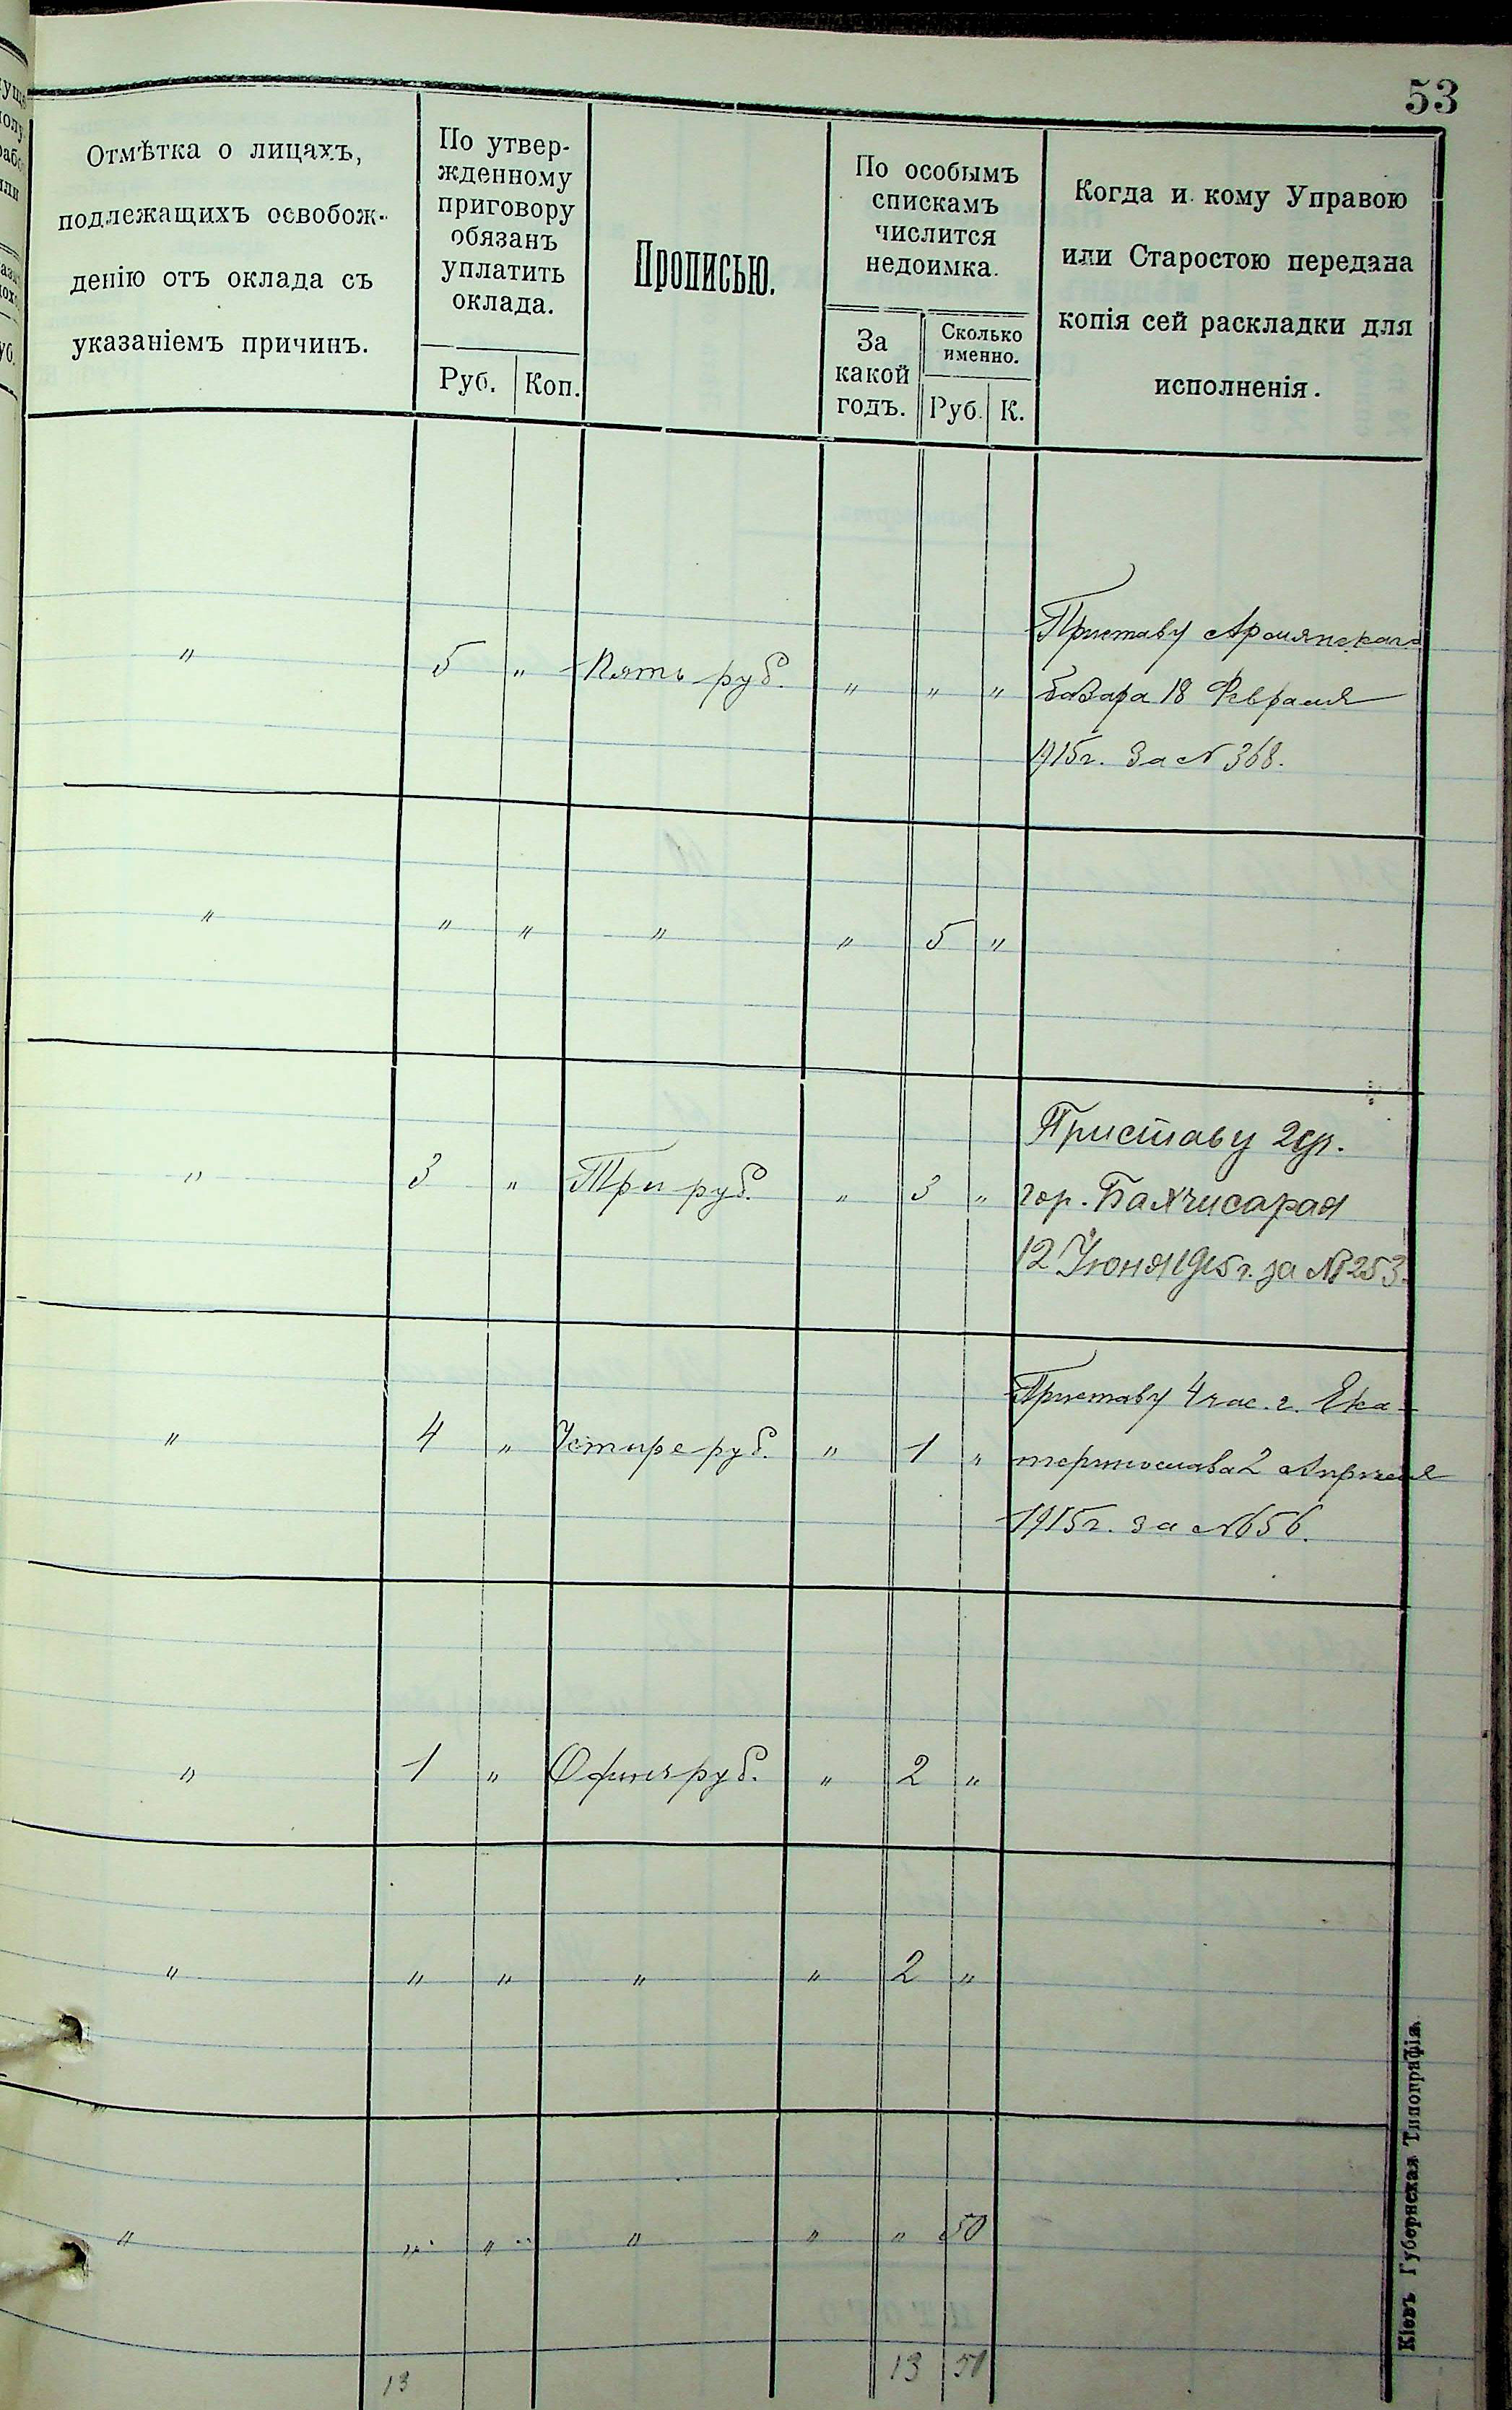 53
Отмѣтка о лицахъ,
подлежащихъ освобож-
денію отъ оклада съ
указаніемъ причинъ.
По утвер-
жденному
приговору
обязанъ
уплатить
оклада.
Руб. Коп.
Прописью.
По особымъ
спискамъ
числится
недоимка.
За
какой
годъ.
Сколько
именно.
Руб. К.
Когда и кому Управою
или Старостою передана
копія сей раскладки для
исполненія.
" 5 " Пять руб. " " "
Приставу Армянскаго
базара 18 Февраля
1915г. за № 368.
" " " " " 5 "
" 3 " Три руб. " 3 "
Приставу 2
гор. Бахчисарая
12 Іюня 1915 г. за № 253.
" 4 " Четыре руб. " 1 "
Приставу 4 час. г. Ека-
теринослава 2 Апреля
1915г. за № 656.
" 1 " Одинъ руб. " 2 "
" " " " " 2 "
" " " " " " 50
13 13 50
Кіевъ Губернская Типографія.